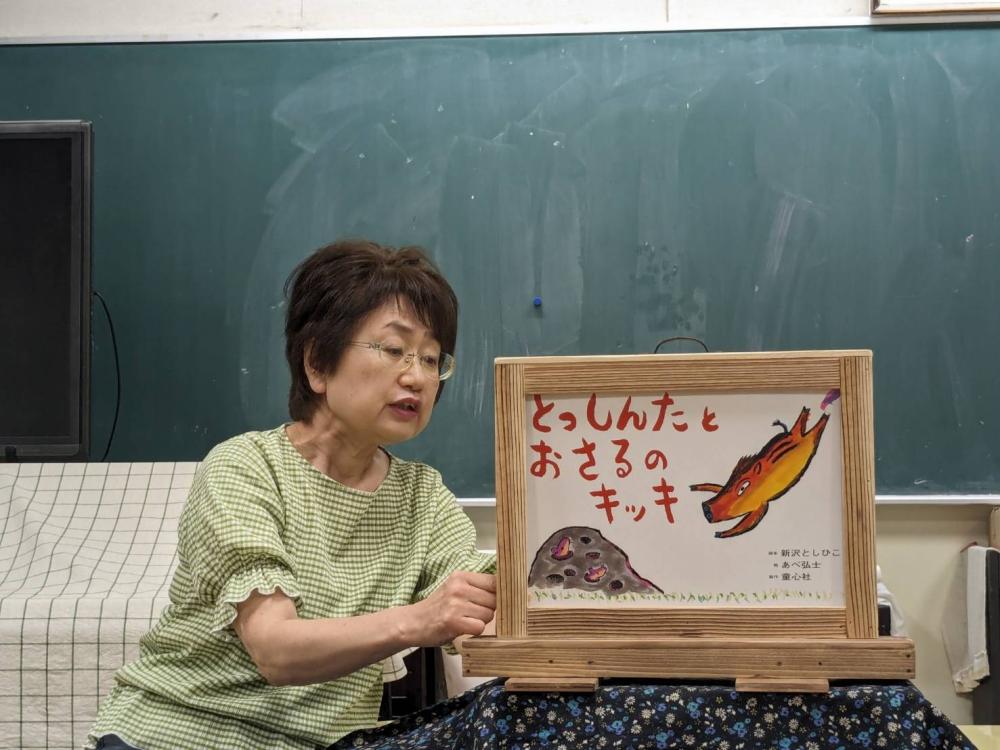 とっしんたと
おさるの
キッキ
脚本 新沢としひこ
絵 あべ弘士
制作 童心社